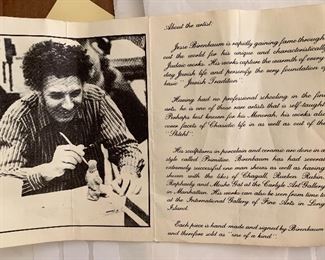 About the artist:
Jesse Birnbaum is rapidly gaining fame through-
out the world for his unique and characteristical
Judaic works. His works capture the warmth of every
day Jewish life and personify the very foundation of
basic "Jewish Tradition".
Having had no professional schooling in the fine
arts, he is one of those rare artists that is self-taught.
Perhaps best known for his Menorah, his works also
cover facets of Chasidic life in as well as out of the
"Shtetl".
His sculptures in porcelain and ceramic are done in a
style called Primitive. Birnbaum has had several
extremely successful one man shows as well as having
shown with the likes of Chagall, Reuben Rubin,
Raphaely and Moshe Gat at the Carlyle Art Gallery
in Manhattan. His works can also be seen from time to
at the International Gallery of Fine Arts in Long
Island.
Each piece is hand made and signed by Birnbaum
and therefore sold as "one of a kind".